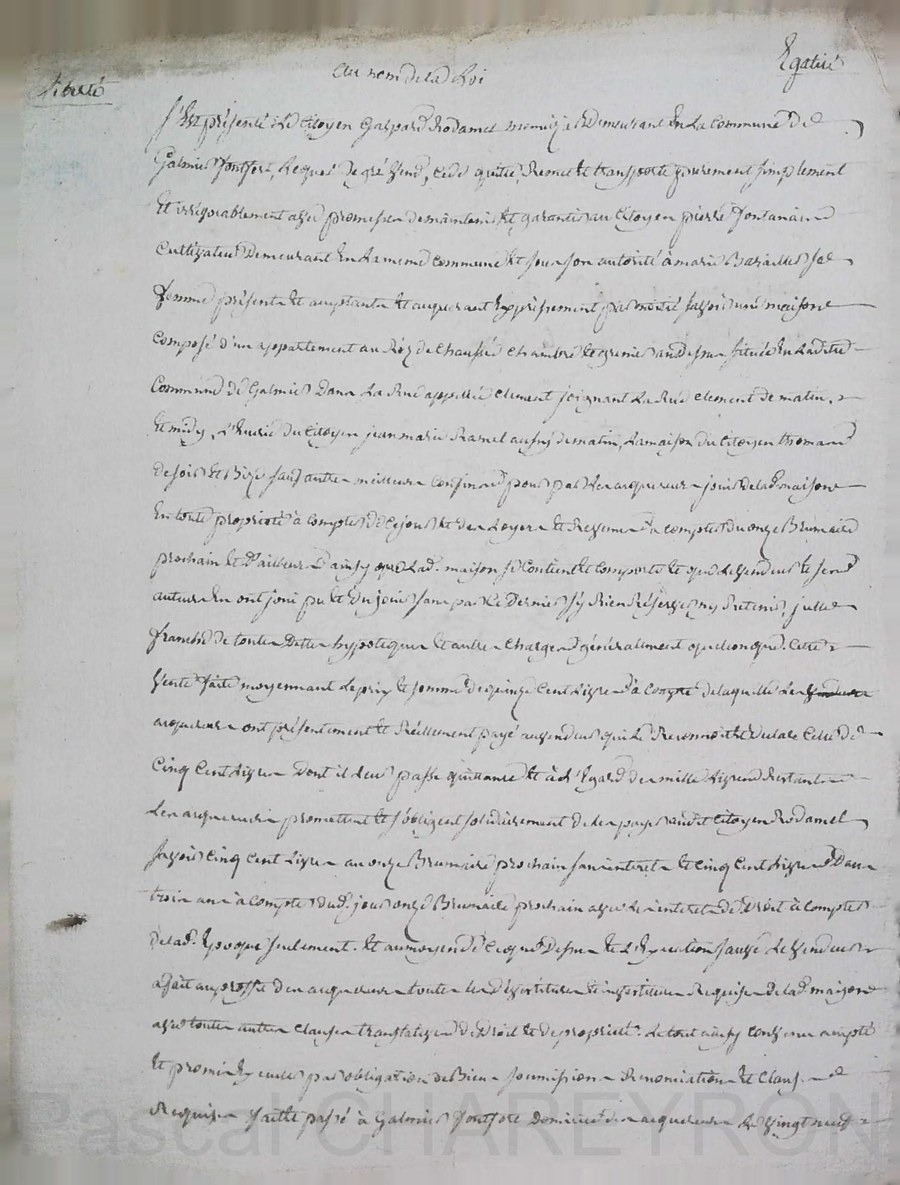 Liberté
au nom de la Loi
Egalité
S'Est présenté Le Citoyen Gaspard Rodamel Demeurant En La Commune De
Galmier fontfort, Lequel De gré Vend, Cede quitte, Remet et transporte purement simplement
Et irrévocablement avec promesse de maintenir et garantir au Citoyen pierre fontanai
Cultivateur Demeurant En La meme Commune Et sous son autorité à marie sa
femme présente et acceptante et acquerant Expressement par moitié savoir une maison
Composé d'un appartement au Réz de Chaussée Chambre et grenier au dessus située En Ladite
Commune de Galmier Dans La Rue appellée Clement joignant La Rue Clement de matin,
Et midy, L'Ecurie du Citoyen jean marie Ramel aussy de matin, La maison du Citoyen thomas
de soir Et Bize sauf autre meilleurs Confins pour par Les acquereurs jouir de lad. maison
En toute propriété à Compter De Ce jour Et des Loyers et Revenus à compter du onze Brumaire
prochain Et D'ailleurs Dainsy que Lad. maison se Contient Et Comporte Et que Le Vendeur Et ses
auteurs En ont joui pu Et Du jouir sans par Ce Dernier s'y Rien Réserver ny Retenir, icelle
franche de toutes Dettes hypoteques Et autres Charges généralement quelconque. Cette
Vente faite moyennant Le prix Et somme de quinze Cent Livres à Compte de laquelle Les Vendeurs
acquereurs ont présentement Et Réellement payé au vendeur qui Le Reconnoit Et declare Celle de
Cinq Cent Livres Dont il Leur passe quittance Et à L'Egard des mille Livres Restantes
Les acquereurs promettent Et s'obligent solidairement de Les payer audit Citoyen Rodamel
savoir Cinq Cent Livres au onze Brumaire prochain sans interet Et Cinq Cent Livres Dans
trois ans à Compter dud. jour onze Brumaire prochain avec Les interets de Droit à Compter
De lad. Epoque seulement. Et au moyen de Ce que Dessus Et L'Execution sauve Le Vendeur
a fait au profit des acquereurs toutes Les Dévetitures Et investitures Requises De lad. maison
avec toutes autres Clauses translatives De Droit Et De propriété. Le tout ainsy Convenu accepté
Et promis Executer par obligation de Biens soumissions Renonciations Et Clauses
Requises fait Et passé à Galmier fontfort Domicile des acquereurs Le Vingt neuf
Pascal CHAREYRON